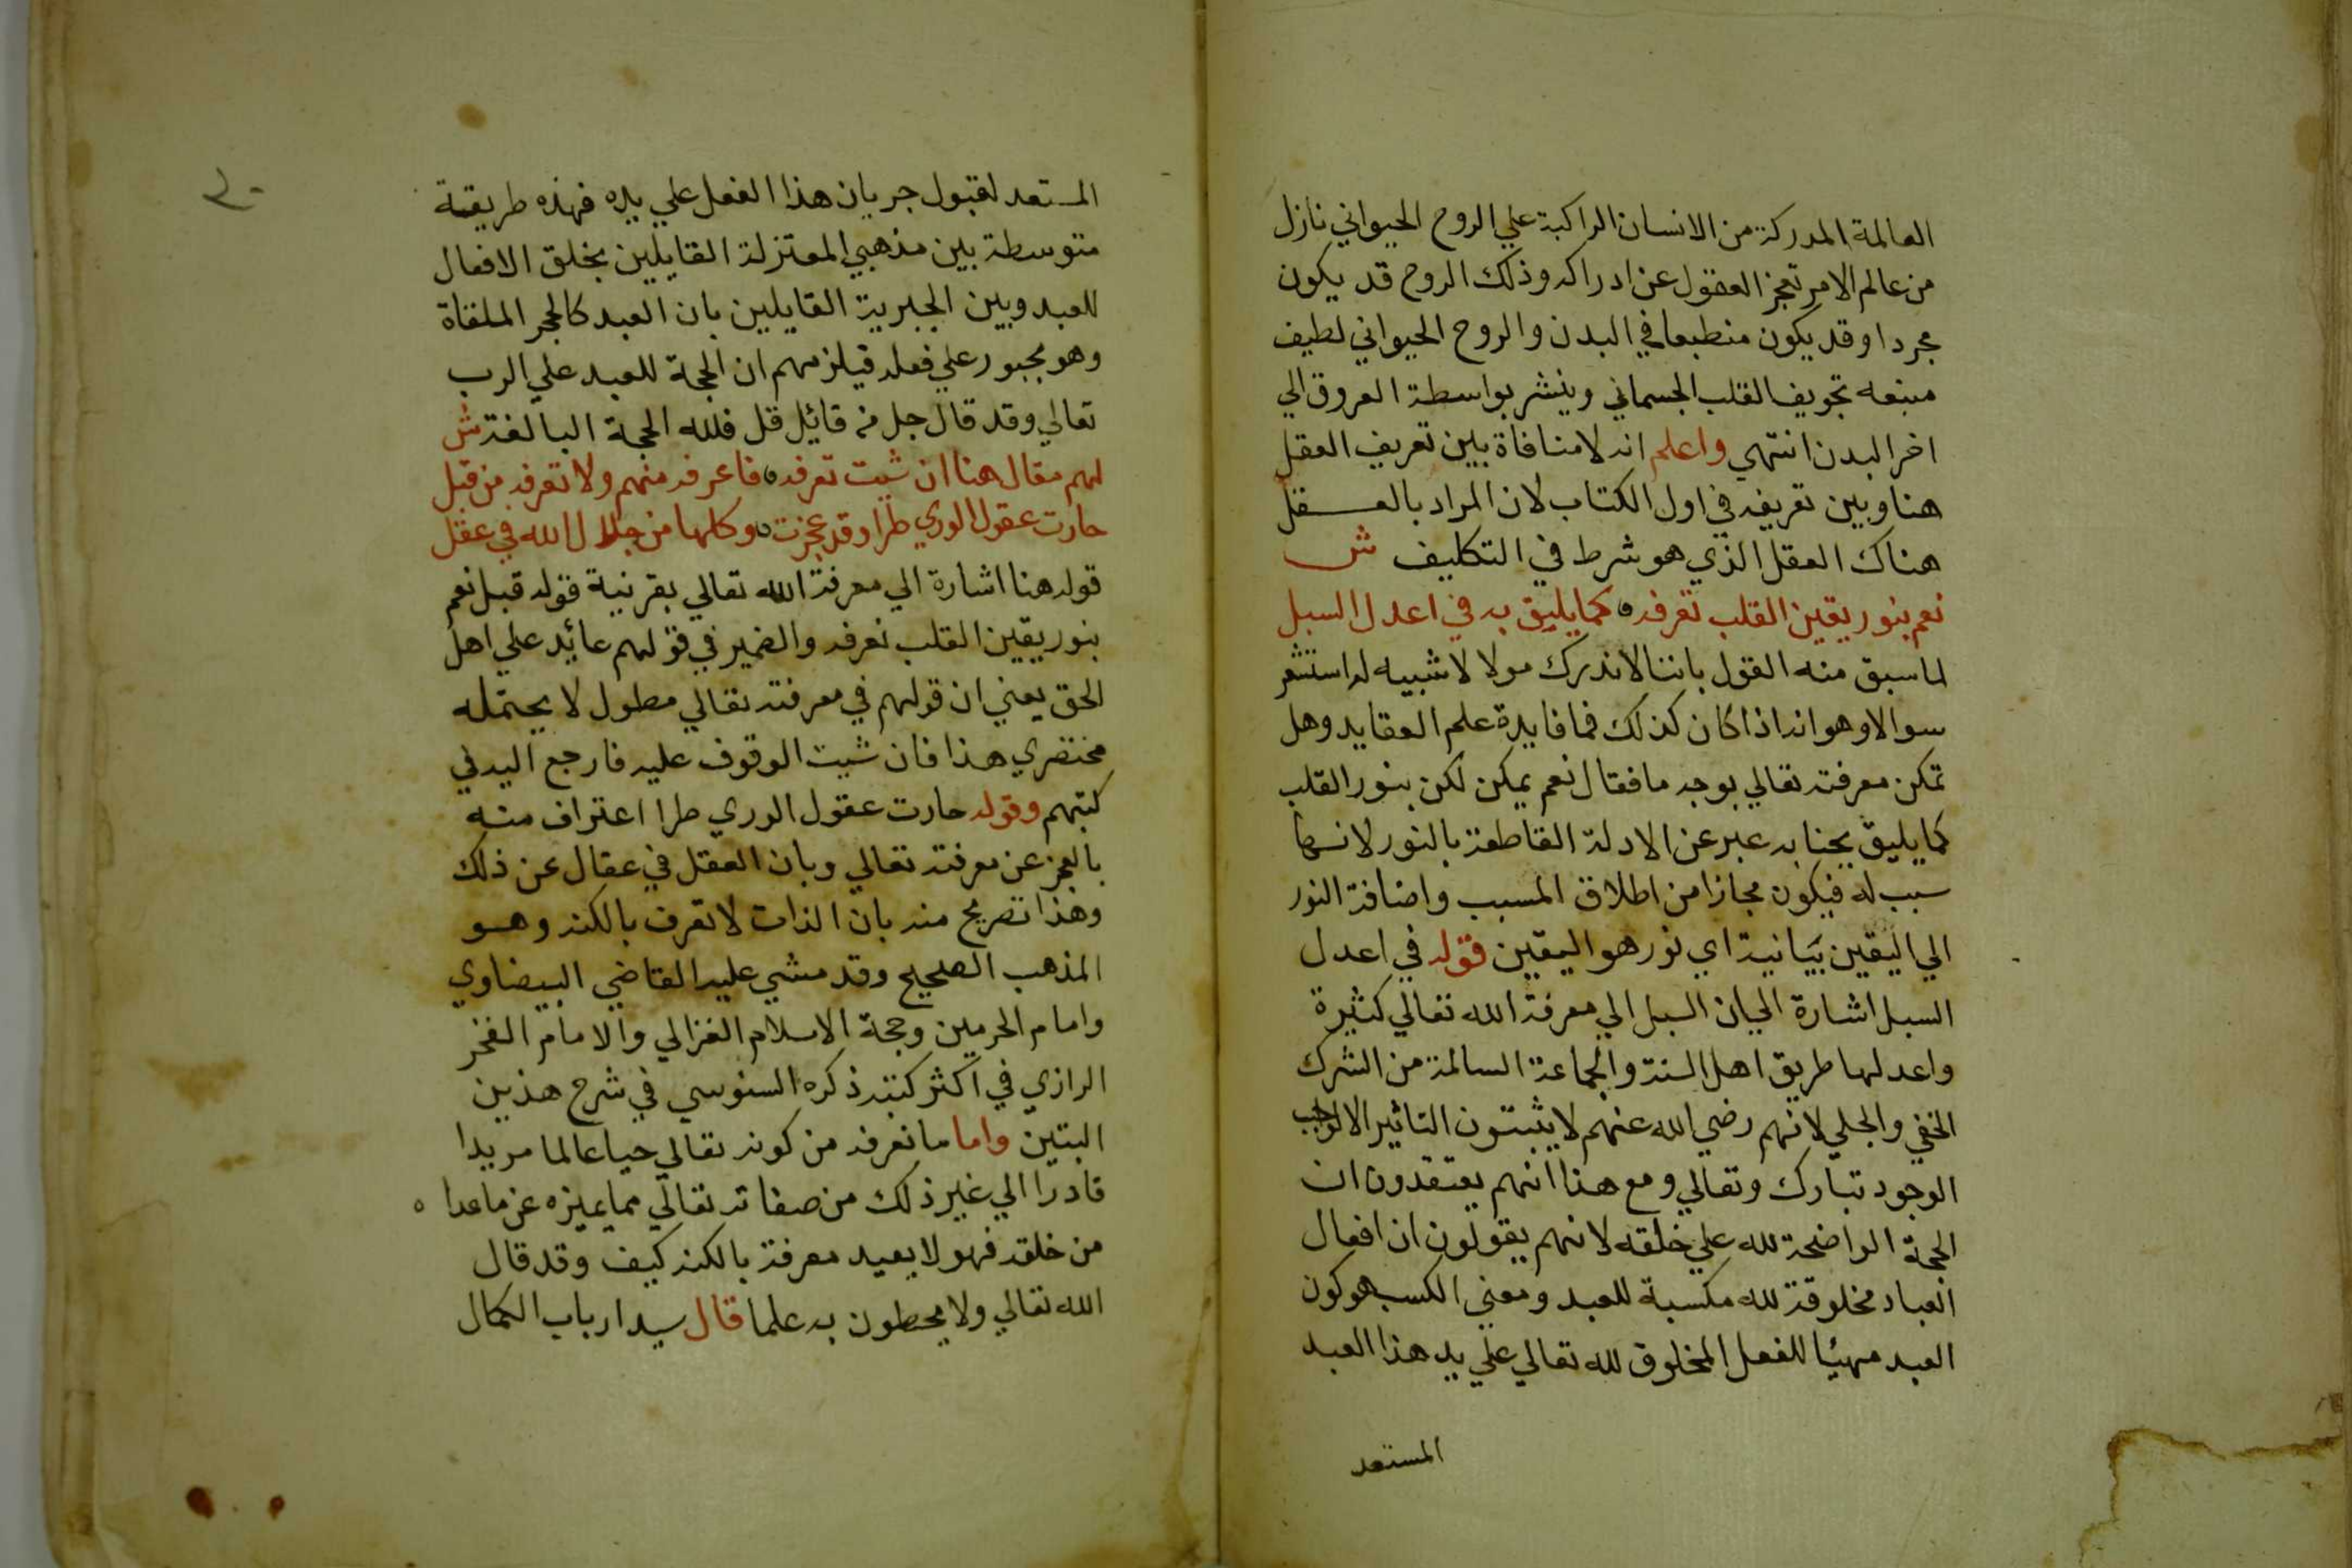 العالمة المدركة من الانسان الراكبة علي الروح الحيواني نازل
من عالم الامر تعجز العقول عن ادراكه وذلك الروح قد يكون
مجردا وقد يكون منطبعا في البدن والروح الحيواني لطيف
منبعه تجويف القلب الجسماني وينشر بواسطة العروق الي
اخر البدن انتهي واعلم انه لا منافاة بين تعريف العقل
هنا وبين تعريفه في اول الكتاب لان المراد بالعقل
هناك العقل الذي هو شرط في التكليف ش
نعم بنور يقين القلب نعرفه كما يليق به في اعدل السبل
لما سبق منه القول باننا لا ندرك مولا لا شبيه له استشعر
سوالا وهو انه اذا كان كذلك فما فايدة علم العقايد وهل
تمكن معرفته تعالي بوجه ما فقال نعم يمكن لكن بنور القلب
كما يليق بجنابه عبر عن الادلة القاطعة بالنور لانها
سبب له فيكون مجازا من اطلاق المسبب واضافة النور
الي اليقين بيانية اي نور هو اليقين قوله في اعدل
السبل اشارة الي ان السبل الي معرفة الله تعالي كثيرة
واعدلها طريق اهل السنة والجماعة السالمة من الشرك
الخفي والجلي لانهم رضي الله عنهم لا يثبتون التاثير الا لواجب
الوجود تبارك وتعالي ومع هذا انهم يعتقدون ان
الحجة الواضحة لله علي خلقه لانهم يقولون ان افعال
العباد مخلوقة لله مكسبة للعبد ومعني الكسب هو كون
العبد مهيئا للفعل المخلوق لله تعالي علي يد هذا العبد
المستعد
٣٠
المستعد لقبول جريان هذا الفعل علي يده فهذه طريقة
متوسطة بين مذهبي المعتزلة القايلين بخلق الافعال
للعبد وبين الجبرية القايلين بان العبد كالحجر الملقاة
وهو مجبور علي فعله فيلزمهم ان الحجة للعبد علي الرب
تعالي وقد قال جل من قائل قل فلله الحجة البالغة ش
لهم مقال هنا ان شيت تعرفه فاعرفه منهم ولا تعرفه من قبل
حارت عقول الوري طرا وقد عجزت وكلها من جلال الله في عقل
قوله هنا اشارة الي معرفة الله تعالي بقرنية قوله قبل نعم
بنور يقين القلب نعرفه والضمير في قولهم عائد علي اهل
الحق يعني ان قولهم في معرفته تعالي مطول لا يحتمله
مختصري هذا فان شيت الوقوف عليه فارجع اليه في
كتبهم وقوله حارت عقول الوري طرا اعتراف منه
بالعجز عن معرفته تعالي وبان العقل في عقال عن ذلك
وهذا تصريح منه بان الذات لا تعرف بالكنه وهو
المذهب الصحيح وقد مشي عليه القاضي البيضاوي
وامام الحرمين وحجة الاسلام الغزالي والامام الفخر
الرازي في اكثر كتبه ذكره السنوسي في شرح هذين
البتين واما ما نعرفه من كونه تعالي حيا عالما مريدا
قادرا الي غير ذلك من صفاته تعالي مما يميزه عن ماعدا ه
من خلقه فهو لا يعيد معرفة بالكنه كيف وقد قال
الله تعالي ولا يحطون به علما قال سيد ارباب الكمال